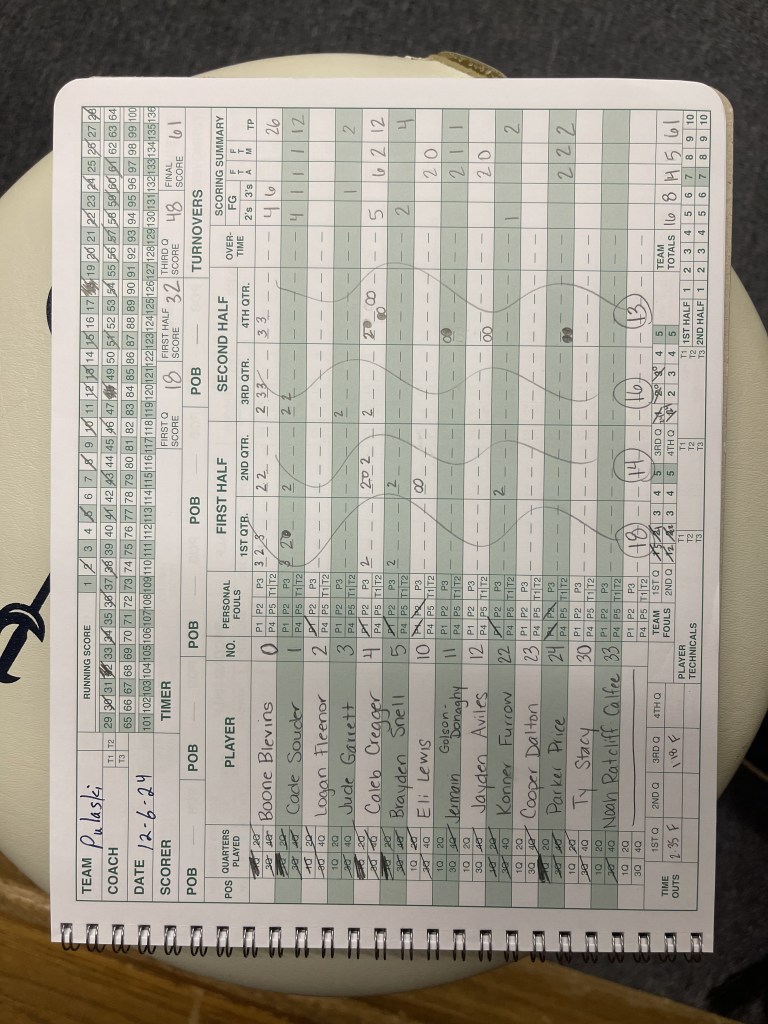 TEAM Pulaski
RUNNING SCORE 1 2 3 4 5 6 7 8 9 10 11 12 13 14 15 16 17 18 19 20 21 22 23 24 25 26 27 28
COACH
T1 T2 T3
29 30 31 32 33 34 35 36 37 38 39 40 41 42 43 44 45 46 47 48 49 50 51 52 53 54 55 56 57 58 59 60 61 62 63 64
DATE 12-6-24
65 66 67 68 69 70 71 72 73 74 75 76 77 78 79 80 81 82 83 84 85 86 87 88 89 90 91 92 93 94 95 96 97 98 99 100
101 102 103 104 105 106 107 108 109 110 111 112 113 114 115 116 117 118 119 120 121 122 123 124 125 126 127 128 129 130 131 132 133 134 135 136
SCORER TIMER FIRST Q SCORE 18 FIRST HALF SCORE 32 THIRD Q SCORE 48 FINAL SCORE 61
POB POB POB POB POB TURNOVERS
POS QUARTERS PLAYED PLAYER NO. PERSONAL FOULS FIRST HALF SECOND HALF OVER-TIME SCORING SUMMARY
1ST QTR. 2ND QTR. 3RD QTR. 4TH QTR. FG 2's 3's FTA FTM TP
1Q 2Q 3Q 4Q Boone Blevins 0 P1 P2 P3 P4 P5 T1 T2 3 2 3 2 2 2 3 3 3 3 4 6 26
1Q 2Q 3Q 4Q Cade Souder 1 P1 P2 P3 P4 P5 T1 T2 3 2 0 2 2 2 4 1 1 1 12
1Q 2Q 3Q 4Q Logan Fleenor 2 P1 P2 P3 P4 P5 T1 T2
1Q 2Q 3Q 4Q Jude Garrett 3 P1 P2 P3 P4 P5 T1 T2 2 1 2
1Q 2Q 3Q 4Q Caleb Cregger 4 P1 P2 P3 P4 P5 T1 T2 2 2 0 2 2 2 0 0 0 0 5 6 2 12
1Q 2Q 3Q 4Q Brayden Snell 5 P1 P2 P3 P4 P5 T1 T2 2 2 2 4
1Q 2Q 3Q 4Q Eli Lewis 10 P1 P2 P3 P4 P5 T1 T2 0 0 2 0
1Q 2Q 3Q 4Q Jermain Golson-Donaghy 11 P1 P2 P3 P4 P5 T1 T2 0 0 2 1 1
1Q 2Q 3Q 4Q Jayden Aviles 12 P1 P2 P3 P4 P5 T1 T2 0 0 2 0
1Q 2Q 3Q 4Q Konner Furrow 22 P1 P2 P3 P4 P5 T1 T2 2 1 2
1Q 2Q 3Q 4Q Cooper Dalton 23 P1 P2 P3 P4 P5 T1 T2
1Q 2Q 3Q 4Q Parker Price 24 P1 P2 P3 P4 P5 T1 T2 0 0 2 2 2
1Q 2Q 3Q 4Q Ty Stacy 30 P1 P2 P3 P4 P5 T1 T2
1Q 2Q 3Q 4Q Noah Ratcliff Calfee 33 P1 P2 P3 P4 P5 T1 T2
1Q 2Q 3Q 4Q P1 P2 P3 P4 P5 T1 T2 18 14 16 13
TIME OUTS 1ST Q 2ND Q 3RD Q 4TH Q TEAM FOULS 1ST Q 1 2 3 4 5 3RD Q 1 2 3 4 5 TEAM TOTALS 16 8 14 5 61
2:35 F 1:40 F 2ND Q 1 2 3 4 5 4TH Q 1 2 3 4 5
PLAYER TECHNICALS T1 T2 T3 T1 T2 T3 T1 T2 T3 1ST HALF 1 2 3 4 5 6 7 8 9 10
2ND HALF 1 2 3 4 5 6 7 8 9 10